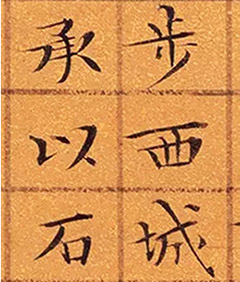 步西城
承以石